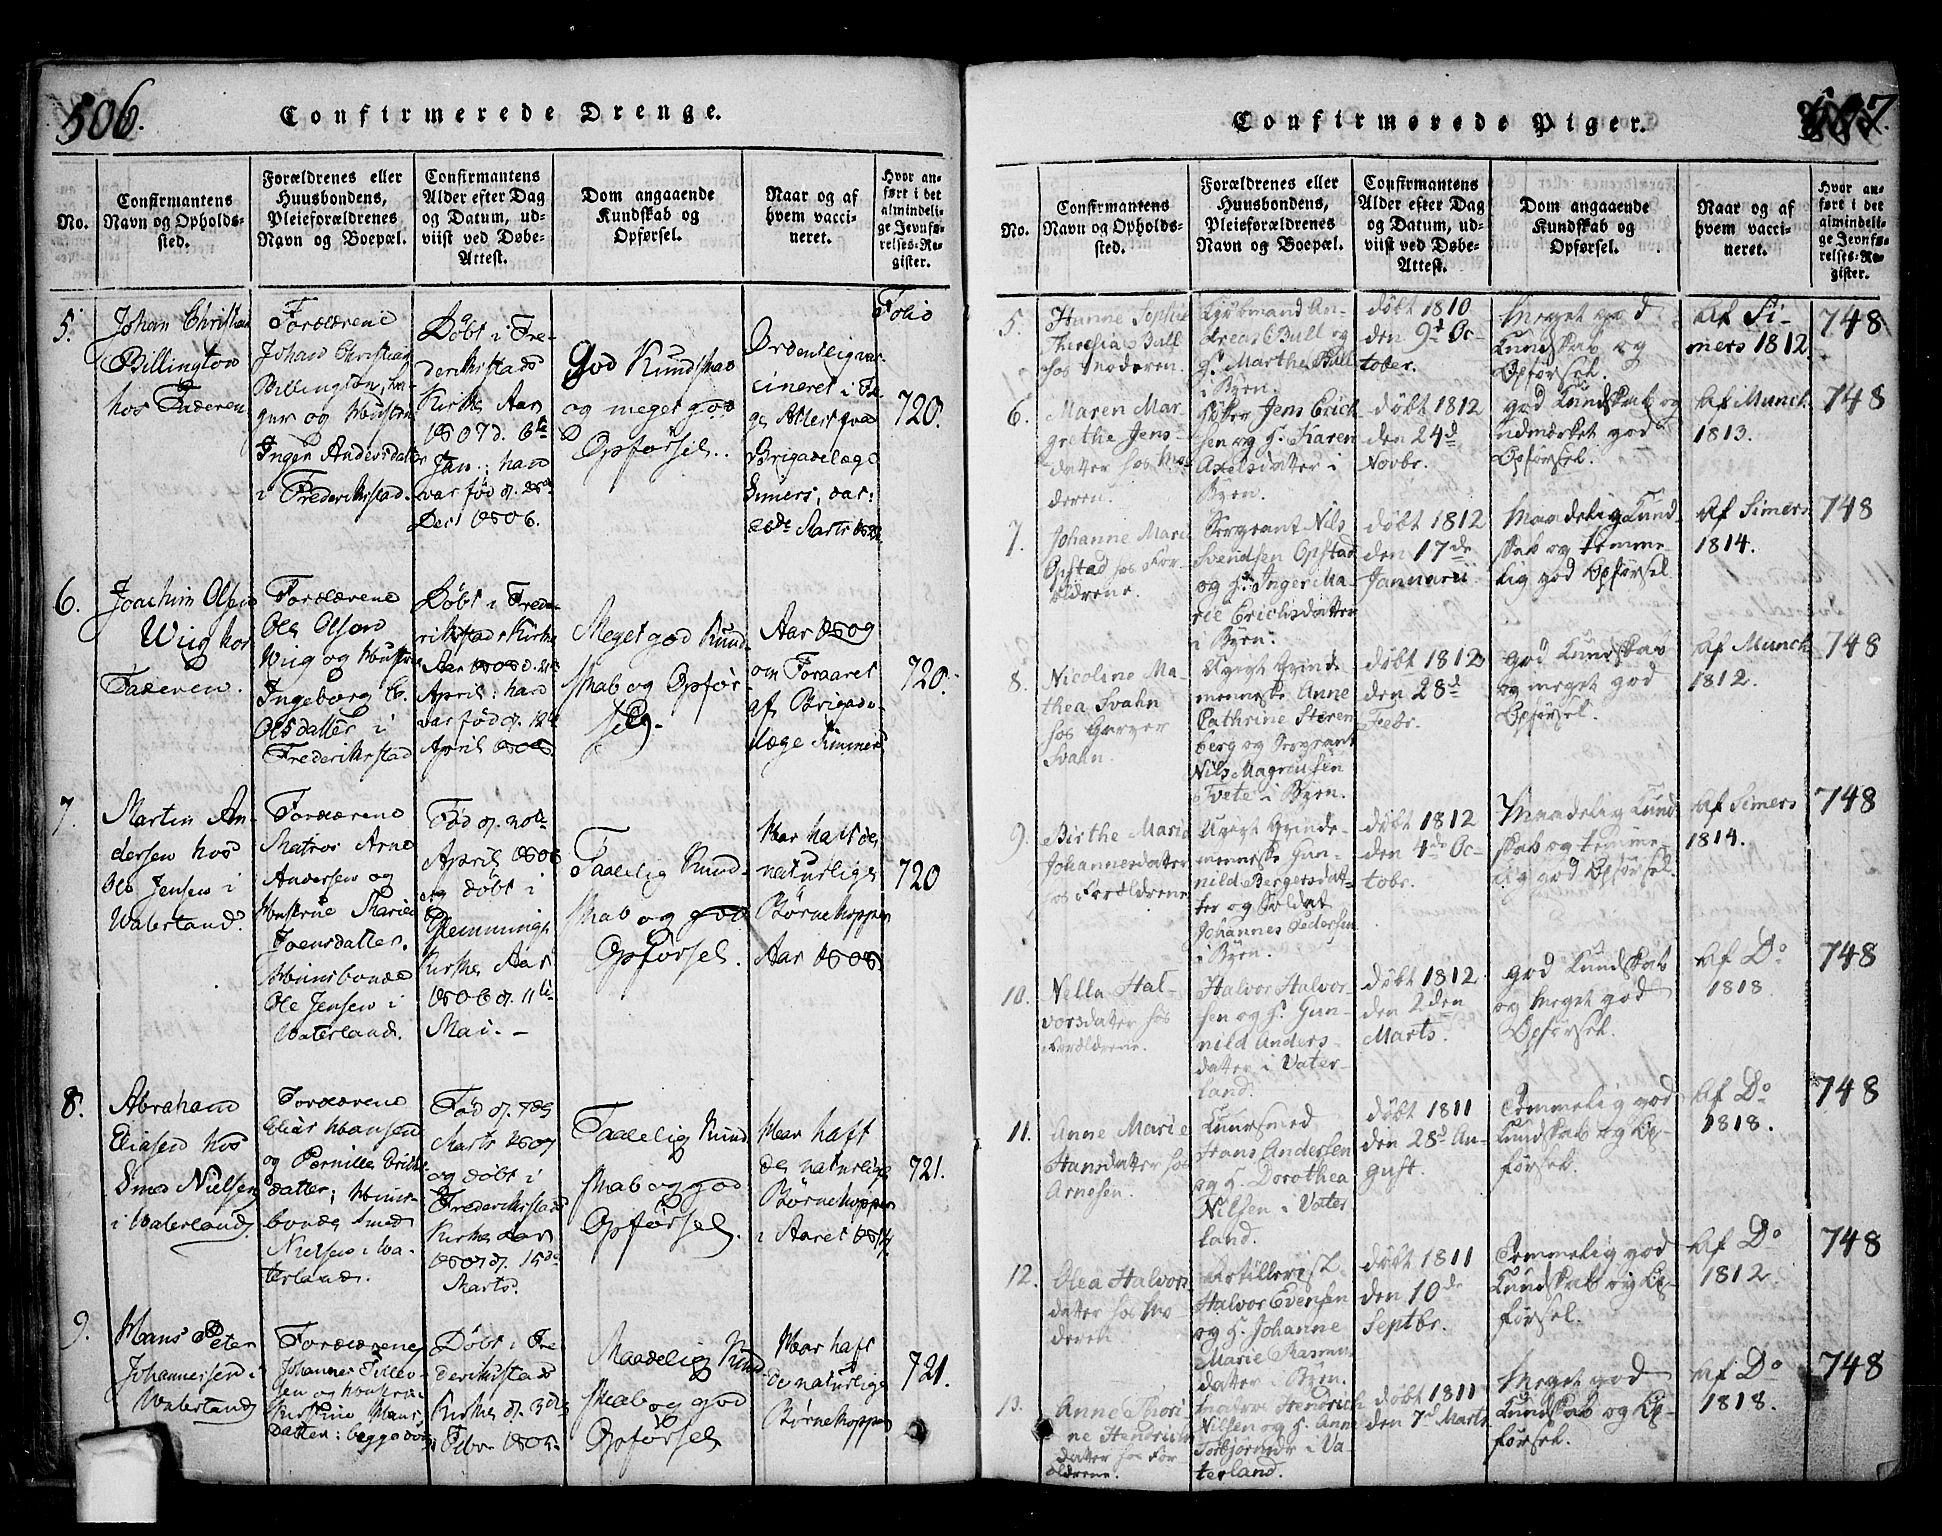 506.
Confirmerede Drenge.
No.
Confirmantens
Navn og Opholds-
sted.
Forældrenes eller
Huusbondens,
Pleieforældrenes
Navn og Boepæl.
Confirmantens
Alder efter Dag
og Datum, ud-
viist ved Døbe-
Attest.
Dom angaaende
Kundskab og
Opførsel.
Naar og af
hvem vacci-
neret.
Hvor an-
ført i det
almindeli-
ge Jevnfø-
relses-Re-
gister.
5.
Johan Christian
Billington
hos Faderen
Forældrene
Johan Christian
Billington,
og Hustru
Inger Andersdatter
i Frederikstad.
Døbt i Fre-
derikstads
Kirke Aar
1807 d. 6te
Jan.; han
var fød d.
Decr 1806.
God Kundskab
og meget god
Opførsel.
Ordentlig vac-
cineret i
Attest fra
Brigadelæge
Simers, dat:
Folio
720.
6.
Joachim Olsen
Wiig hos
Faderen.
Forældrene
Ole Olsen
Wiig og Hustru
Ingeborg
Olsdatter i
Frederikstad
Døbt i Frede-
rikstads Kirke
Aar
April; han
var fød d. 12te
April
Meget god Kund-
skab og Opfør-
sel.
Aar 1809
om Foraaret
af Brigade-
læge Simmers
720.
7.
Martin An-
dersen hos
Ole Jensen i
Waterland.
Forældrene
Matros Arne
Andersen og
Hustrue Maria
Joensdatter.
Huusbonde
Ole Jensen i
Waterland.
Fød d. 20de
April 1806
og døbt i
Glemminge
Kirke Aar
1806 d. 11te
Mai. -
Taalelig Kund-
skab og god
Opførsel.
Har haft de
naturlige
Børnekopper
Aar 1808.
720
8.
Abraham
Eliasen hos
Smed Nielsen
i Waterland
Forældrene
Elias Hansen
og Pernille Erichs-
datter; Huus-
bonde Smed
Nielsen i Wa-
terland.
Fød d. 7de
Marts 1807
og døbt i
Frederikstads
Kirke Aar
1807 d. 15de
Marts.
Taalelig Kund
skab og god
Opførsel.
Har haft
de naturlige
Børnekopper
i Aaret
721.
9.
Hans Peter
Johannessen i
Waterland
Forældrene
Johannes
sen og Hustrue
Kirstine Hans
datter: begge døde
Døbt i Fre
derikstads
Kirke d. 3de
Febr
Maadelig Kund-
skab og god
Opførsel
Har haft
de naturlige
Børnekopper
721.
507.
Confirmerede Piger.
No.
Confirmantens
Navn og Opholds-
sted.
Forældrenes eller
Huusbondens,
Pleieforældrenes
Navn og Boepæl.
Confirmantens
Alder efter Dag
og Datum, ud-
viist ved Døbe-
Attest.
Dom angaaende
Kundskab og
Opførsel.
Naar og af
hvem vacci-
neret.
Hvor an-
ført i det
almindeli-
ge Jevnfø-
relses-Re-
gister.
5.
Hanne Sophie
Theresia Bull
hos Moderen.
Kjøbmand An-
dreas Bull og
H. Marthe Bull
i Byen.
døbt 1810
den 9d Oc-
tober.
Meget god
Kundskab og
Opførsel.
Af Si-
mers 1812.
748
6.
Maren Mar-
grethe Jens-
datter hos Mo-
deren.
Høker Jens Erich
sen og H. Karen
Axelsdatter i
Byen.
døbt 1812
den 24d
Novbr.
god Kundskab og
udmærket god
Opførsel.
Af Munch
1813.
748
7.
Johanne Marie
Opstad hos For-
ældrene.
Sergeant Nils
Svendsen Opstad
og H. Inger Ma-
rie Erichsdatter
i Byen.
døbt 1812
den 17de
Januarii
Maadelig Kund-
skab og temme-
lig god Opførsel
Af Simers
1814.
748
8.
Nicoline Ma-
thea Svahn
hos Garver
Svahn.
Ugivt Qvinde
menneske Anne
Cathrine Steren
berg og Sergeant
Nils Magnusen
Tvete i Byen.
døbt 1812
den 28d
Febr.
god Kundskab
og meget god
Opførsel.
Af Munch
1812.
748
9.
Birthe Maria
Johannesdatter
hos Forældrene
Ugivt Qvinde-
menneske Gun-
nild Bergersdat-
ter og Soldat
Johannes Pedersen
i Byen.
døbt 1812
den 4de Oc-
tobr.
Maadelig Kund
skab og temme-
lig god Opførsel.
Af Simers
1814.
748
10.
Nella Hal-
vorsdatter hos
Forældrene.
Halvor Halvor-
sen og H. Gun-
nild Anders-
datter i Vater-
land.
døbt 1812
den 2den
Marts.
god Kundskab
og Meget god
Opførsel.
Af Do
1818
748
11.
Anne Marie
Hansdatter hos
Arnesen.
Kuursmed
Hans Andersen
og H. Dorothea
Nilsen i Vater
land.
døbt 1811
den 28d Au-
gust.
Temmelig god
Kundskab og Op-
førsel.
Af Do
1818.
748
12.
Olea Halvors
datter hos Mo
deren
Artillerist
Halvor Evensen
og H. Johanne
Marie Rasmus
datter i Byen.
døbt 1811
den 10de
Septbr.
Temmelig god
Kundskab og Op-
førsel.
Af Do
1812.
748
13.
Anne Thori-
ne Hendrichs
datter hos For
ældrene.
Matros Hendrich
Nilsen og H. Anne
Torbjørnsdr i Va-
terland.
døbt 1811
den 7d Marts
Meget god
Kundskab og Op-
førsel.
Af Do
1818.
748